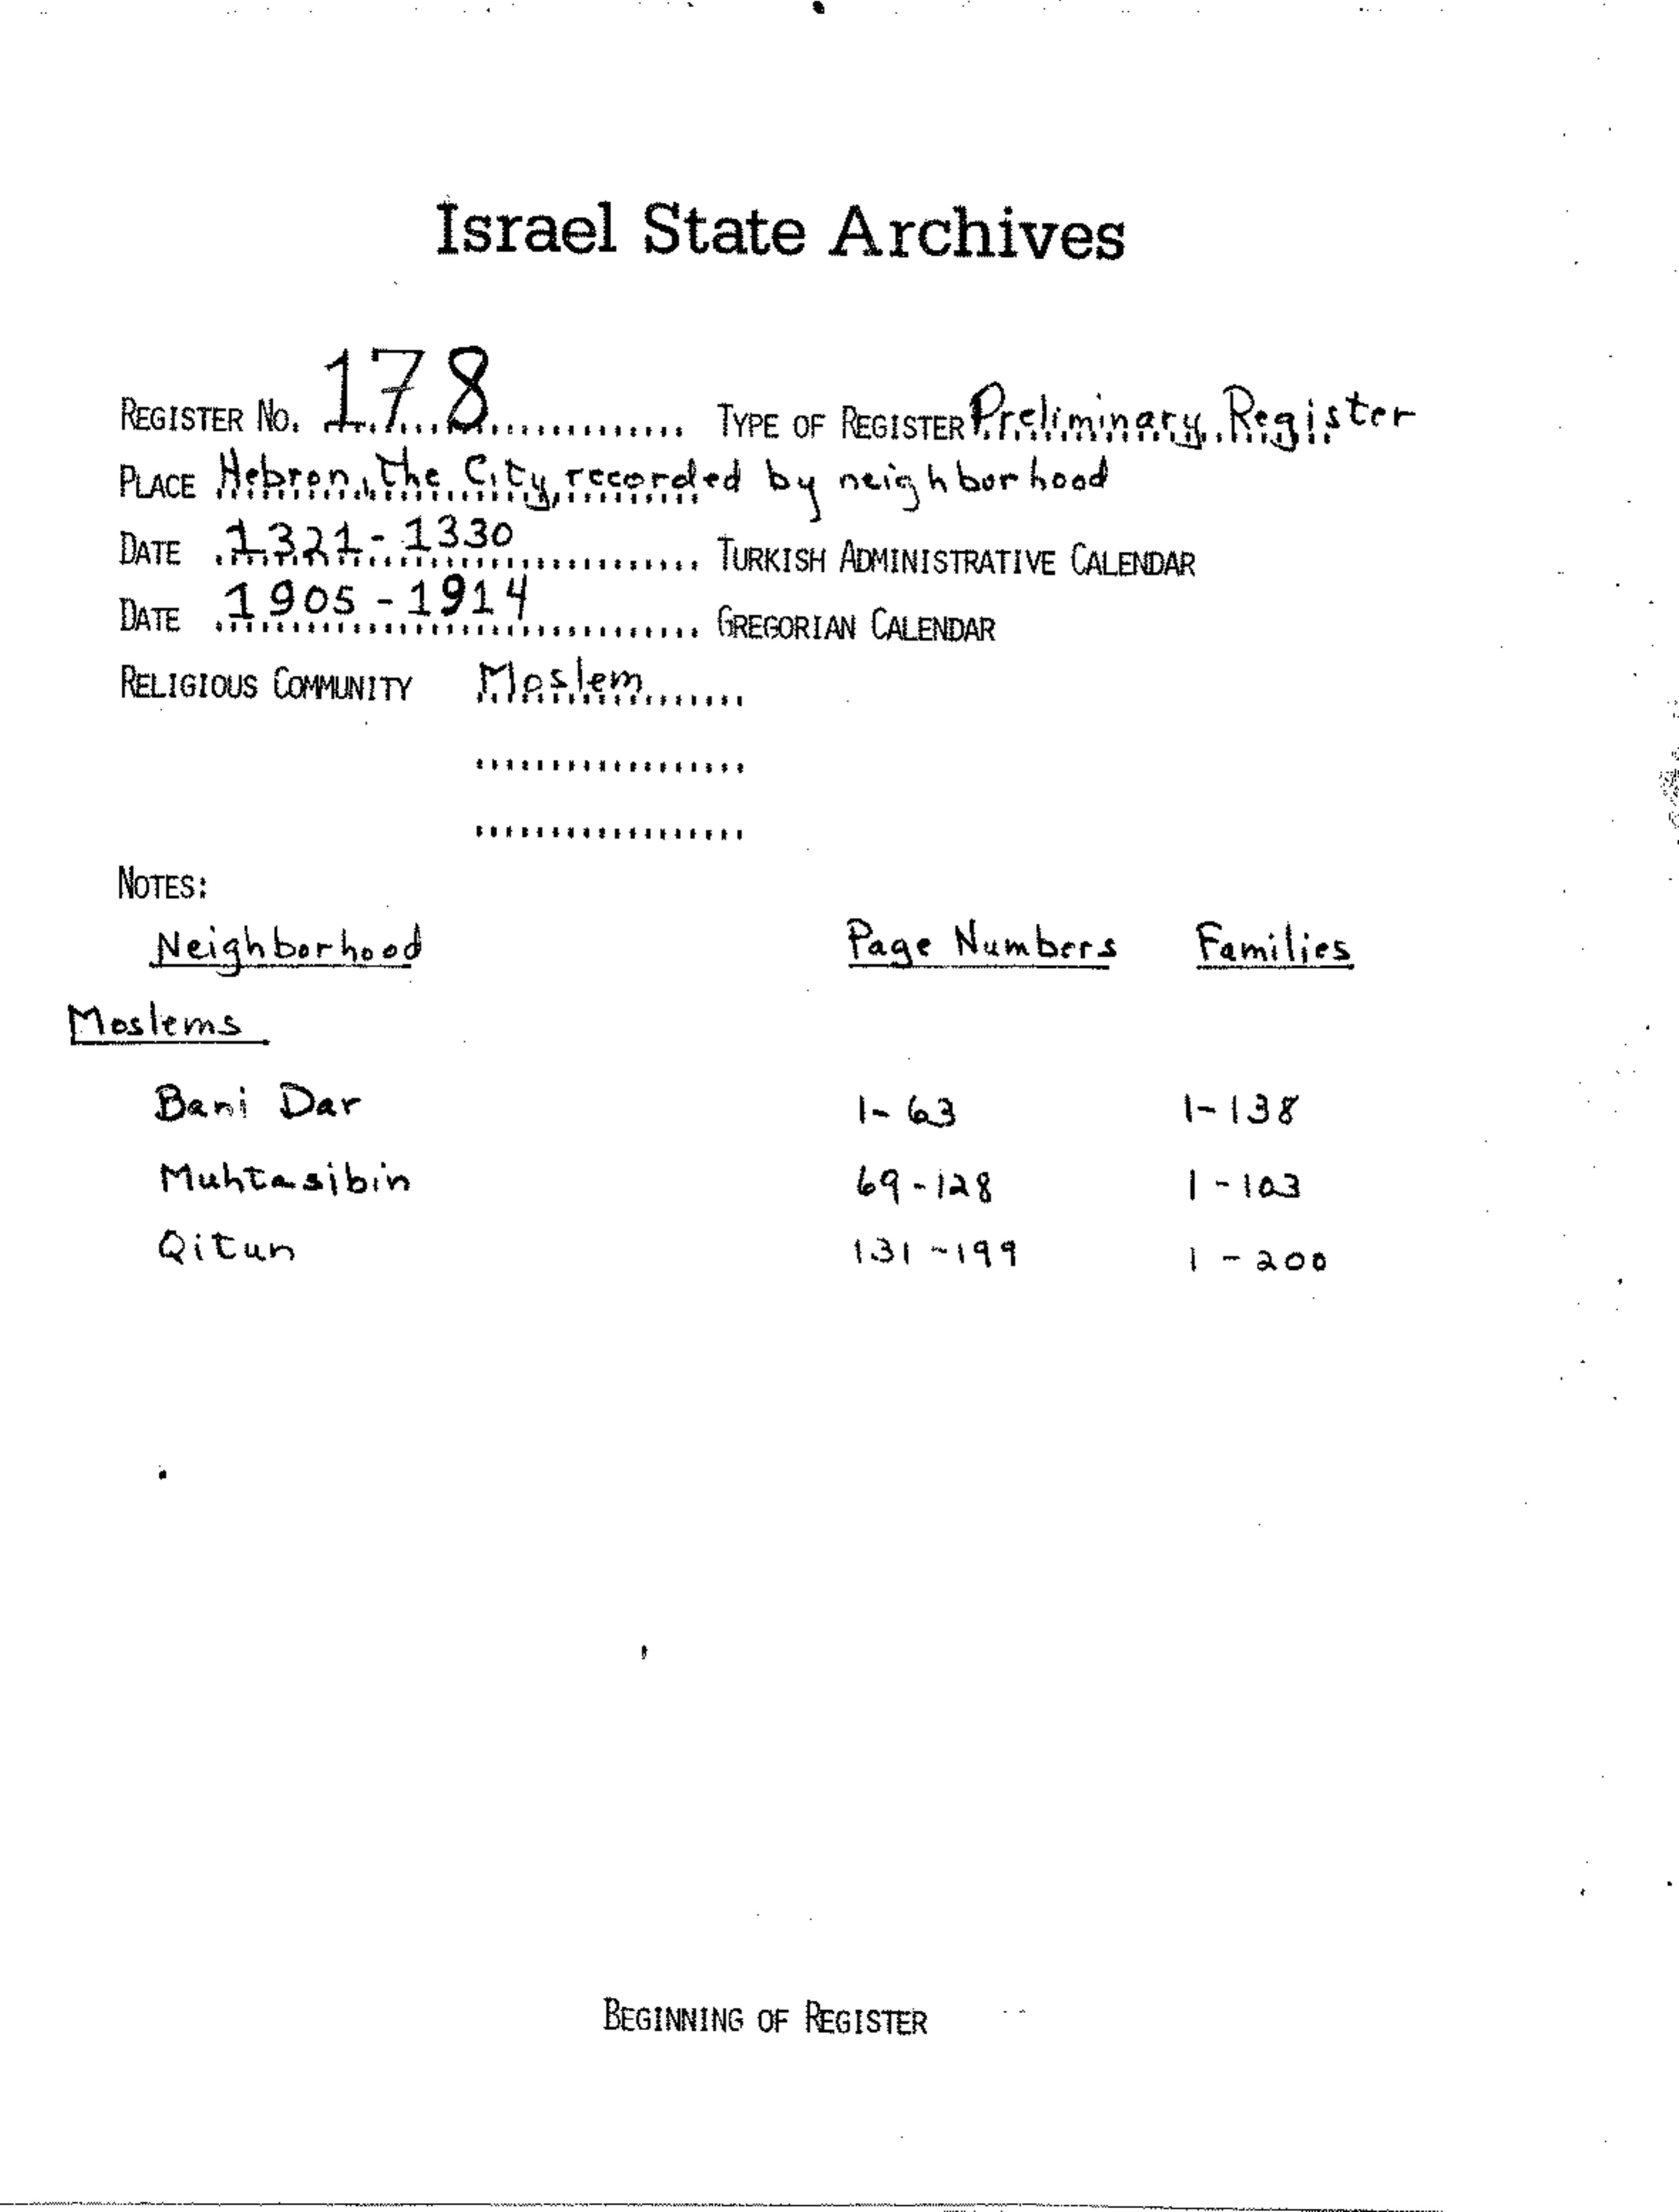 Israel State Archives
REGISTER NO. 178 TYPE OF REGISTER Preliminary Register
PLACE Hebron, the City, recorded by neighborhood
DATE 1321-1330 TURKISH ADMINISTRATIVE CALENDAR
DATE 1905-1914 GREGORIAN CALENDAR
RELIGIOUS COMMUNITY Moslem
NOTES:
Neighborhood Page Numbers Families
Moslems
Bani Dar 1-63 1-138
Muhtasibin 69-128 1-103
Qitun 131-199 1-200
BEGINNING OF REGISTER